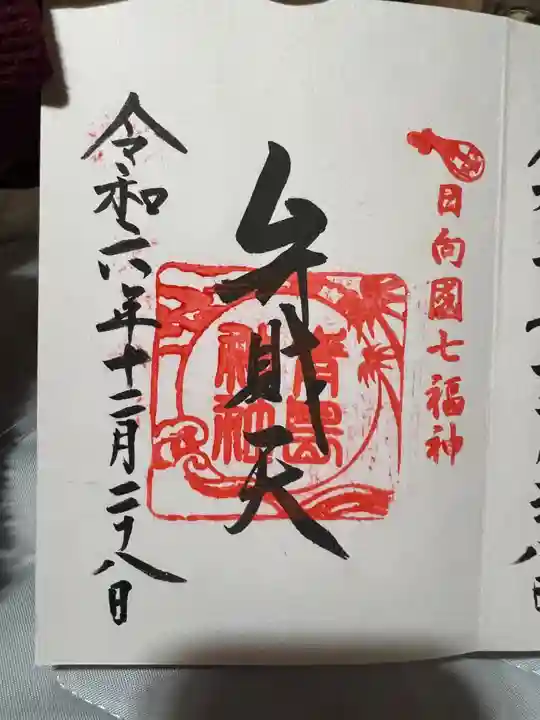 日向國七福神
弁財天
青島神社
令和六年十二月二十八日